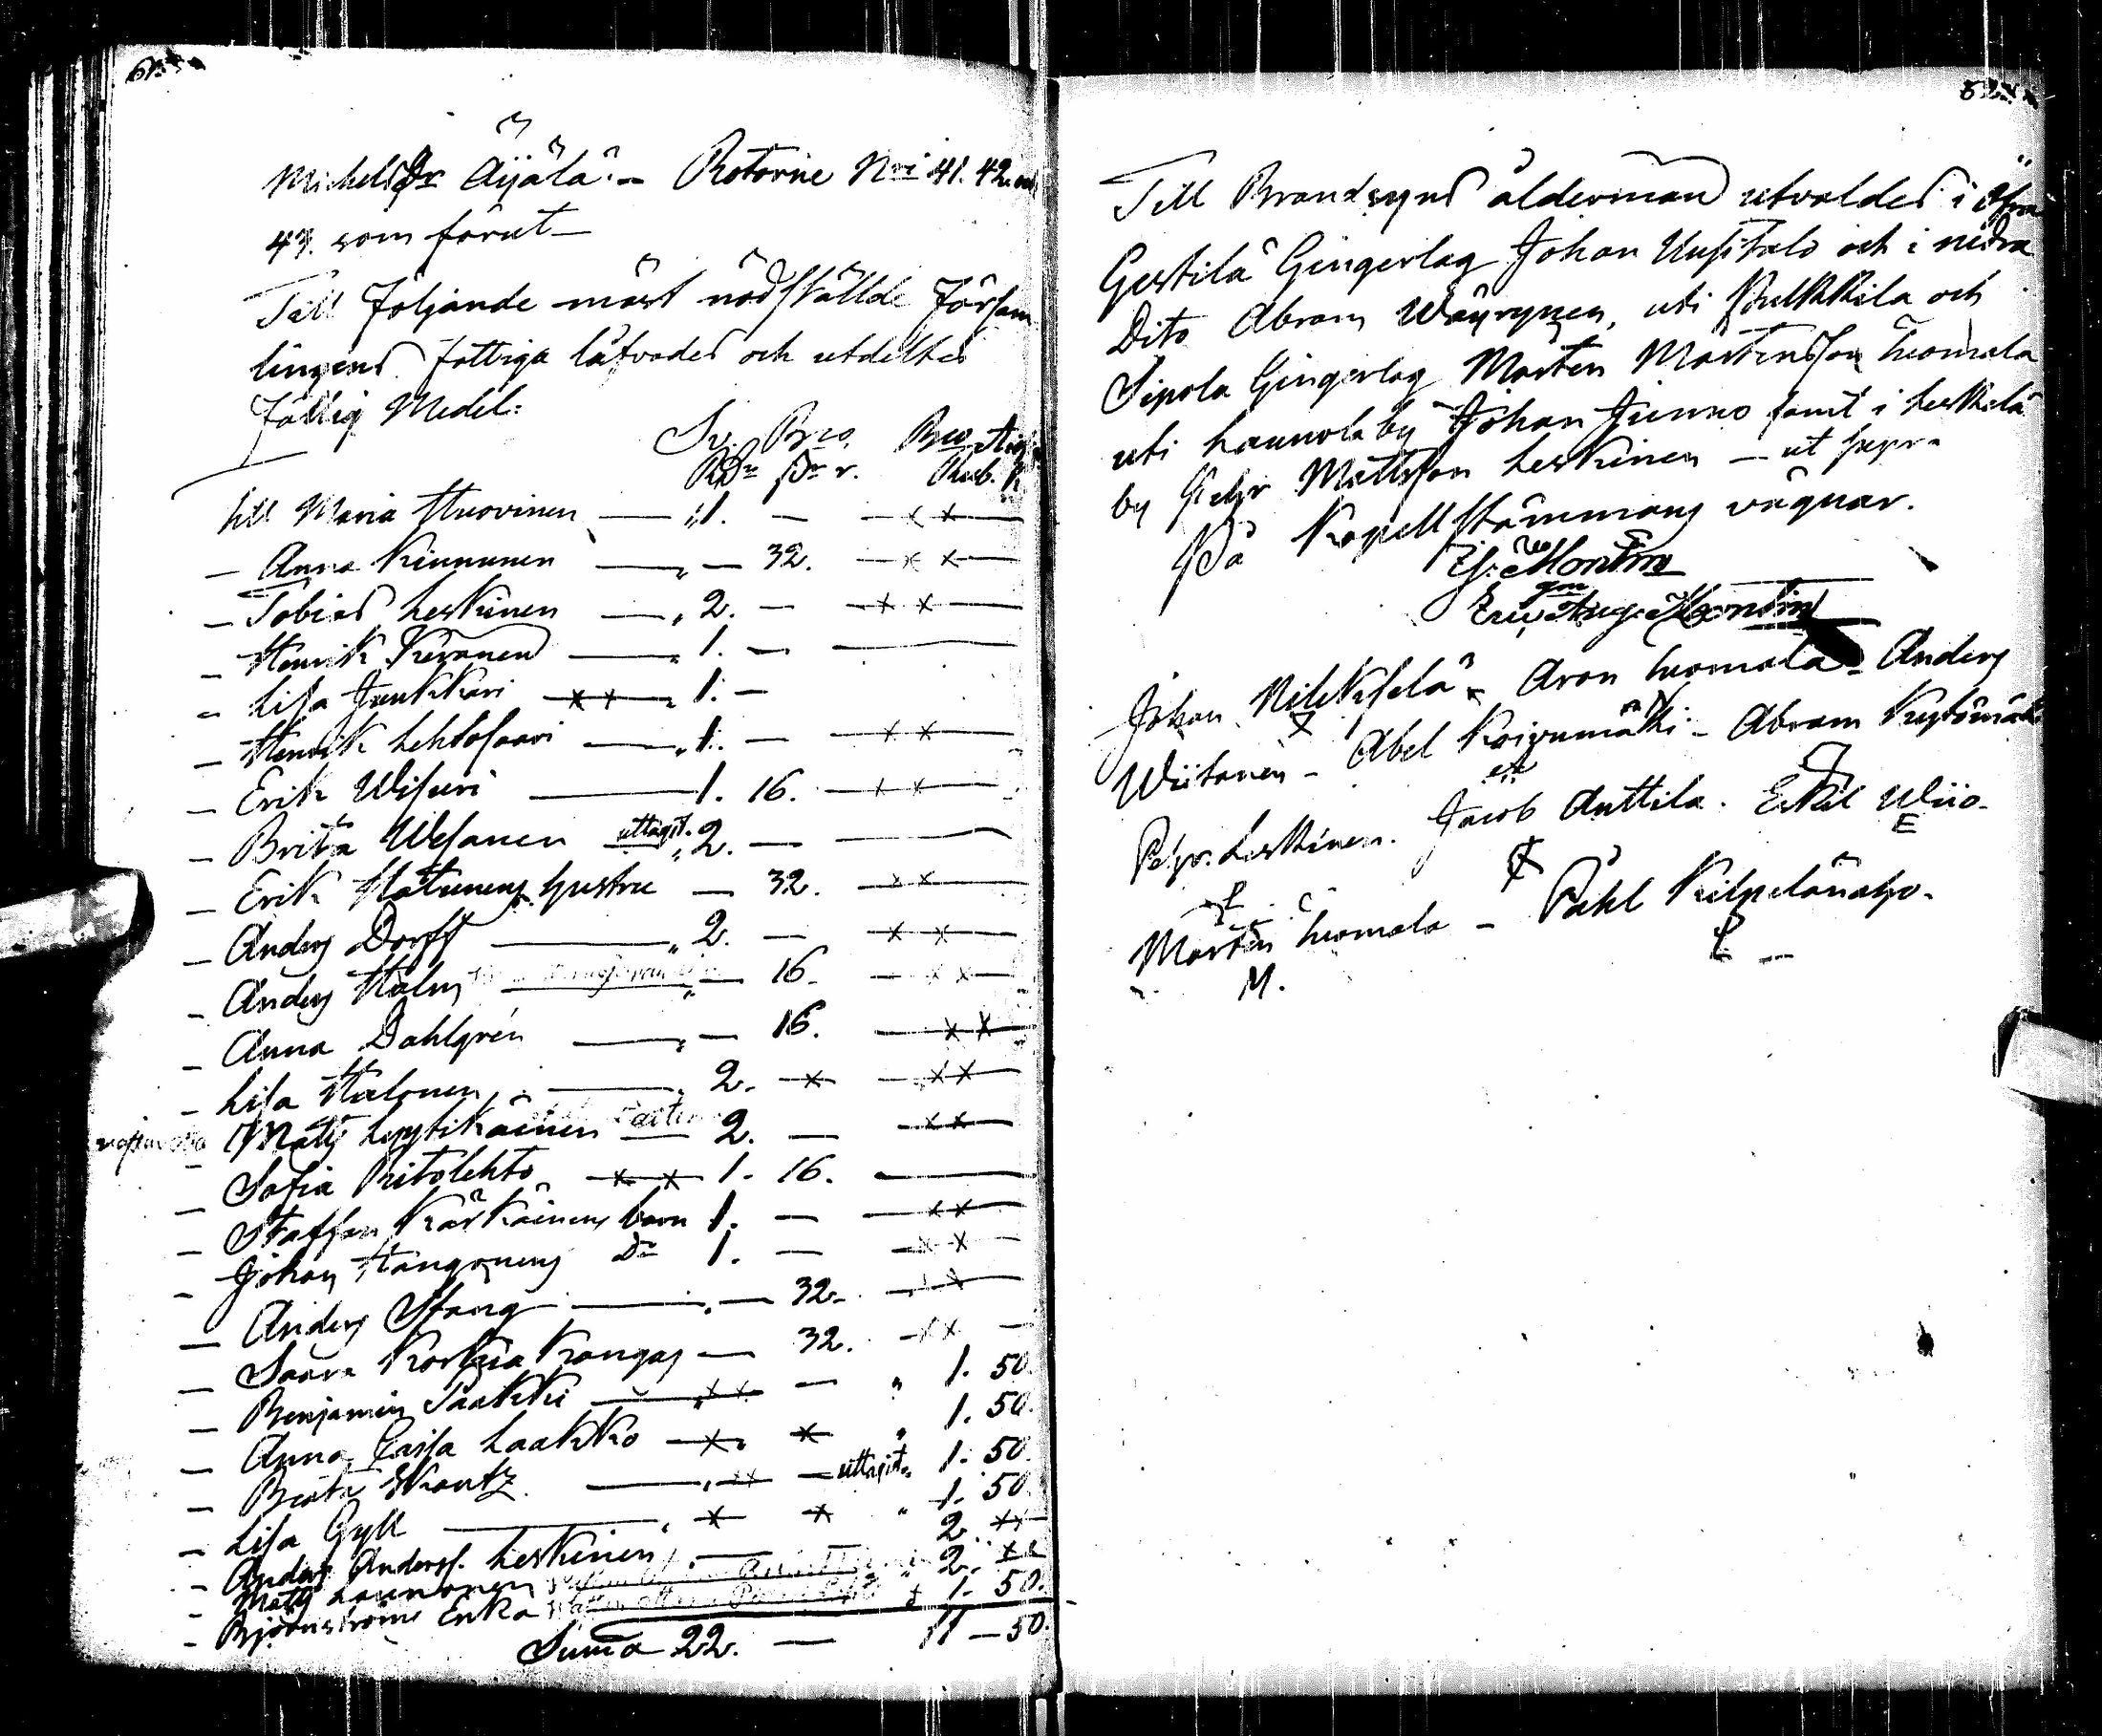 61.
Michelsdr Äijälä. – Rotorne Nri 41. 42. och
43. som förut –
Till följande mäst nödstälde Försam
lingens fattiga låfvades och utdeltes
fattig Medel:
Sv. Bco. Bco Assig
RDr sk r. Rub. K
till Maria Huovinen — 1. —
— Anna Kinnunen — 32.
— Tobias Leskinen — 2. —
— Henrik Keränen — 1. —
— Lisa Junkkari — 1. —
— Henrik Lehtosaari — 1. —
— Erik Wisuri — 1. 16.
— Brita Wesanen uttagit. 2. —
— Erik Hatunens hustru — 32.
— Anders Dorff — 2. —
— Anders Halm — 16.
— Anna Dahlgrén — 16.
— Lisa Halonen — 2.
— Matts Lyytikäinen — 2. —
— Sofia Pritolehto — 1. 16.
— Staffan Kärkäinens barn 1. —
— Johan Hangonens Do 1. —
— Anders Stang — 32.
— Saara Korkiakangas — 32.
— Benjamin Paakki — " 1. 50.
— Anna Caisa Laakko " 1. 50.
— Beata Skantz — uttagit. 1. 50.
— Lisa Gyll — " 1. 50
— Anders Anderss. Leskinen — 2.
— Matts Launonen 2.
— Björnströms Erika 1. 50.
Suma 22. — 11 – 50.
62.
Till Brandsyns ålderman utvaldes i Öfra
Gestilä Gingerlag Johan Uusitalo och i nedra
Dito Abram Wäyrynen, uti Pulkkila och
Sipola Gingerlag Morten Mortensson Tuomala
uti Launola by Johan Junno samt i Leskelä
by Pehr Mattsson Leskinen – ut supra
På Kapellstämmans vägnar.
E. J. Montin
gm
Eric Aug. Montin
Johan Nilekselä – Aron Tuomala – Anders
Wiitanen – Abel Koivumäki – Abram Kuytömäki
Pehr Leskinen. Jacob Anttila. Erkil Wiio.
E
Morten Tuomala – Påhl Kilpeländho.
M.